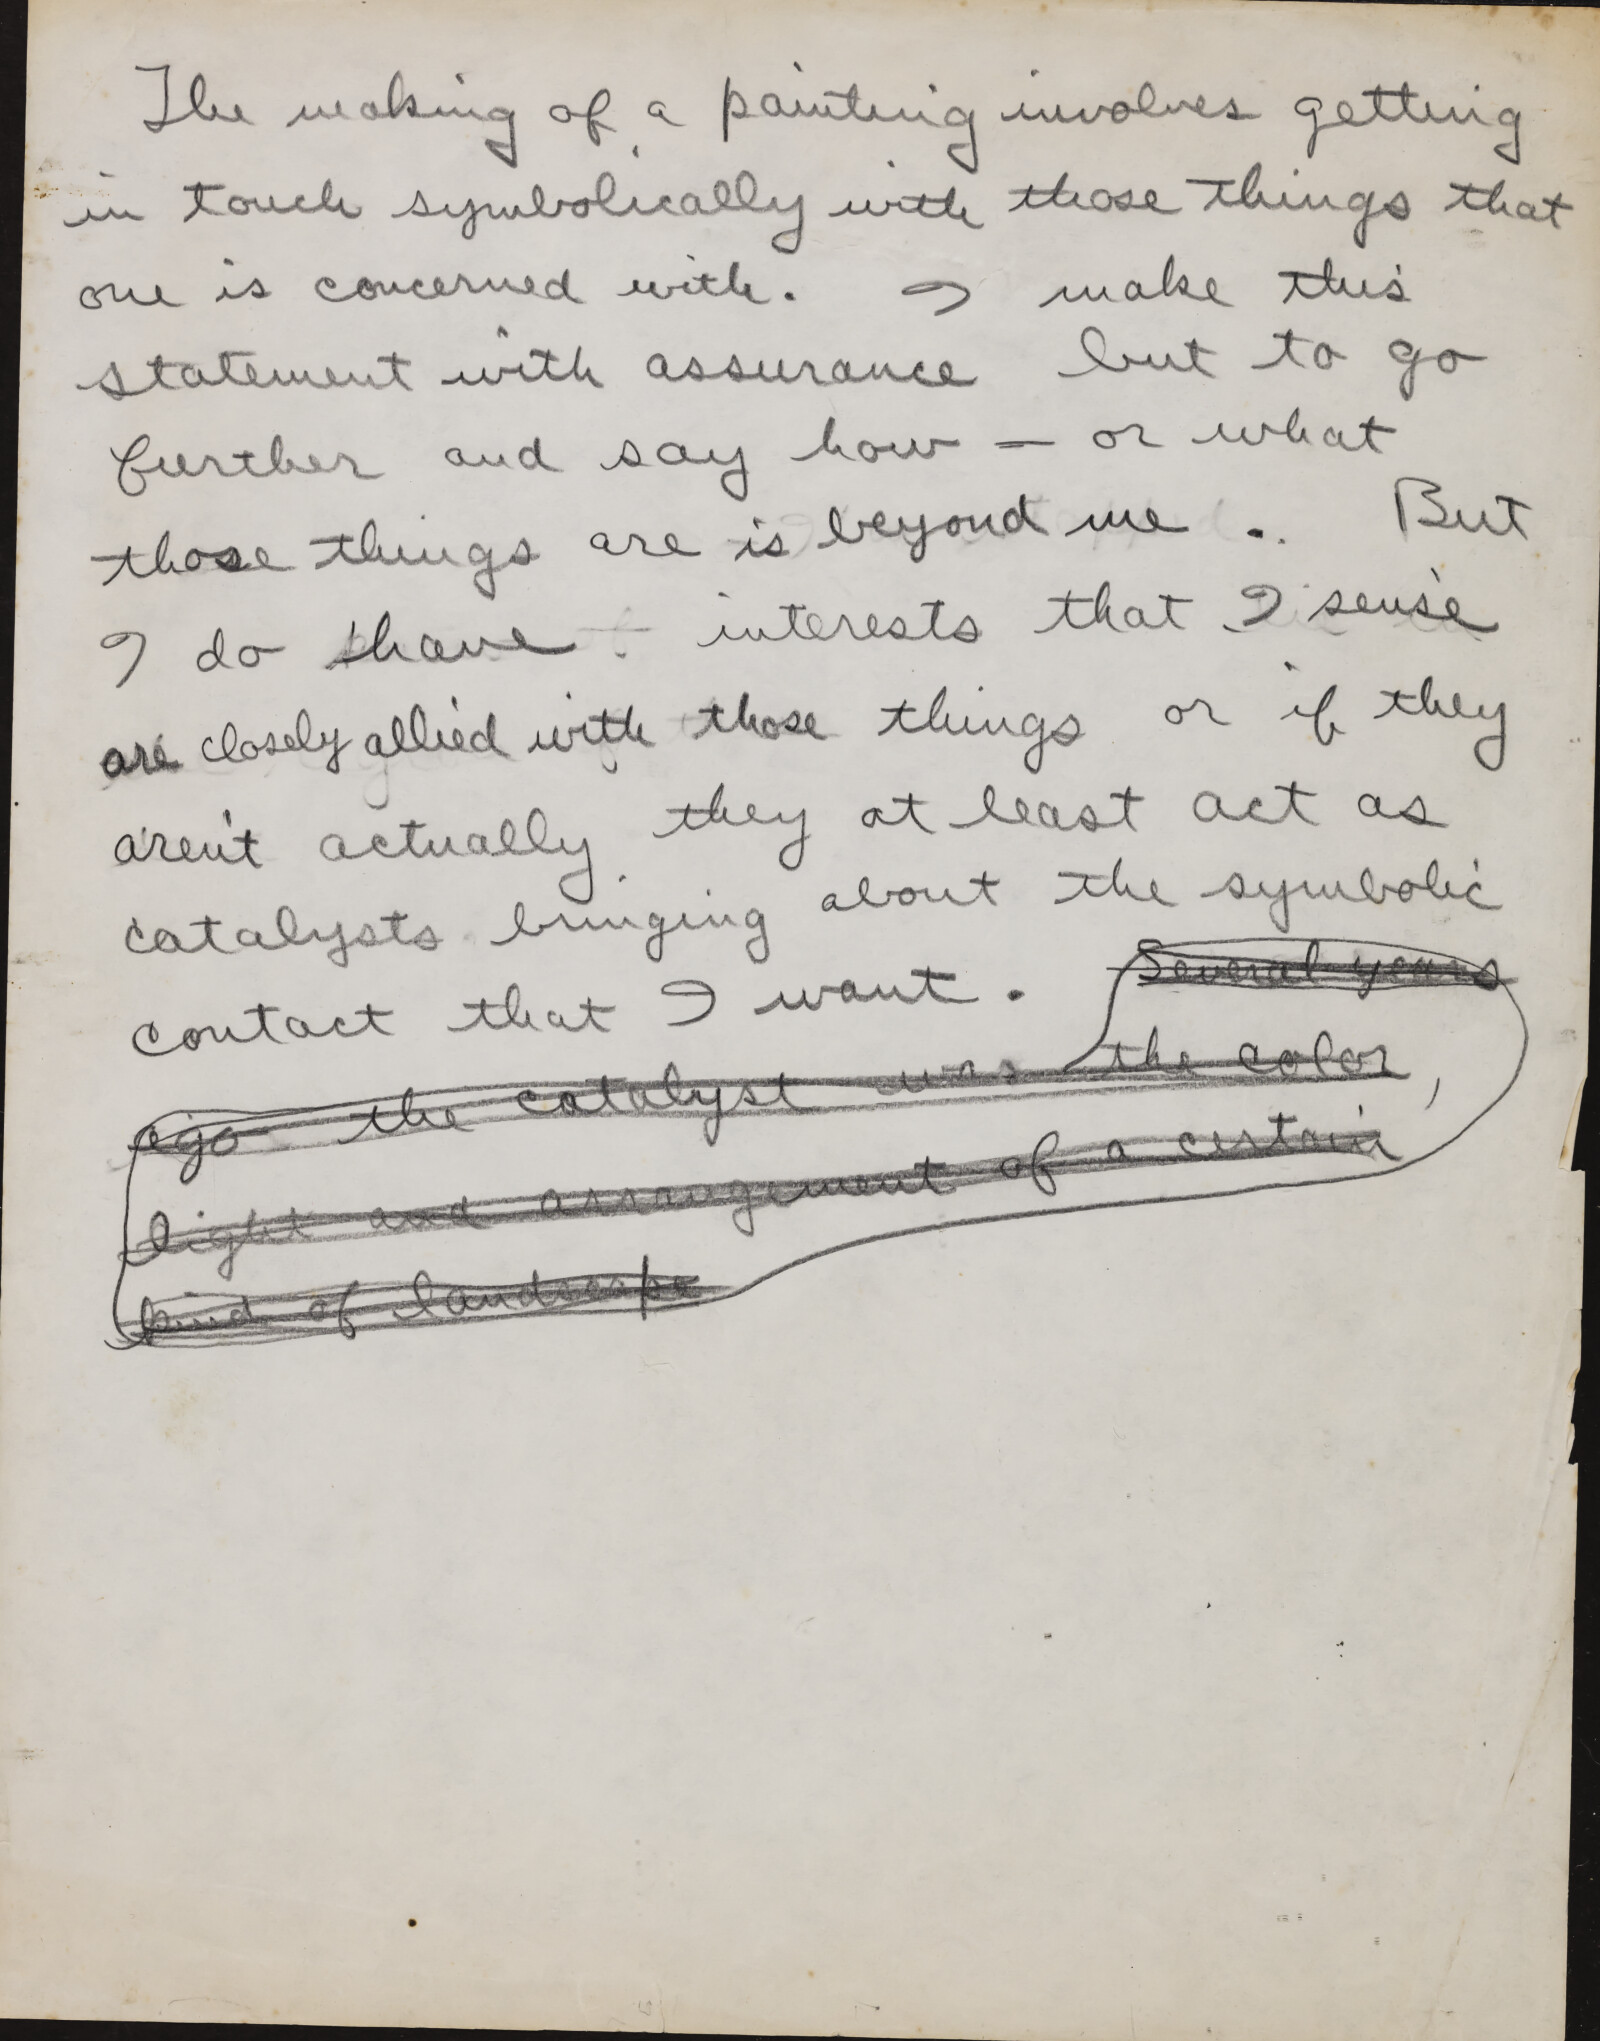 The making of a painting involves getting
in touch symbolically with those things that
one is concerned with. I make this
statement with assurance but to go
further and say how — or what
those things are is beyond me. But
I do have interests that I sense
are closely allied with those things or if they
aren't actually they at least act as
catalysts bringing about the symbolic
contact that I want. Several years
ago the catalyst was the color,
light and arrangement of a certain
kind of landscape